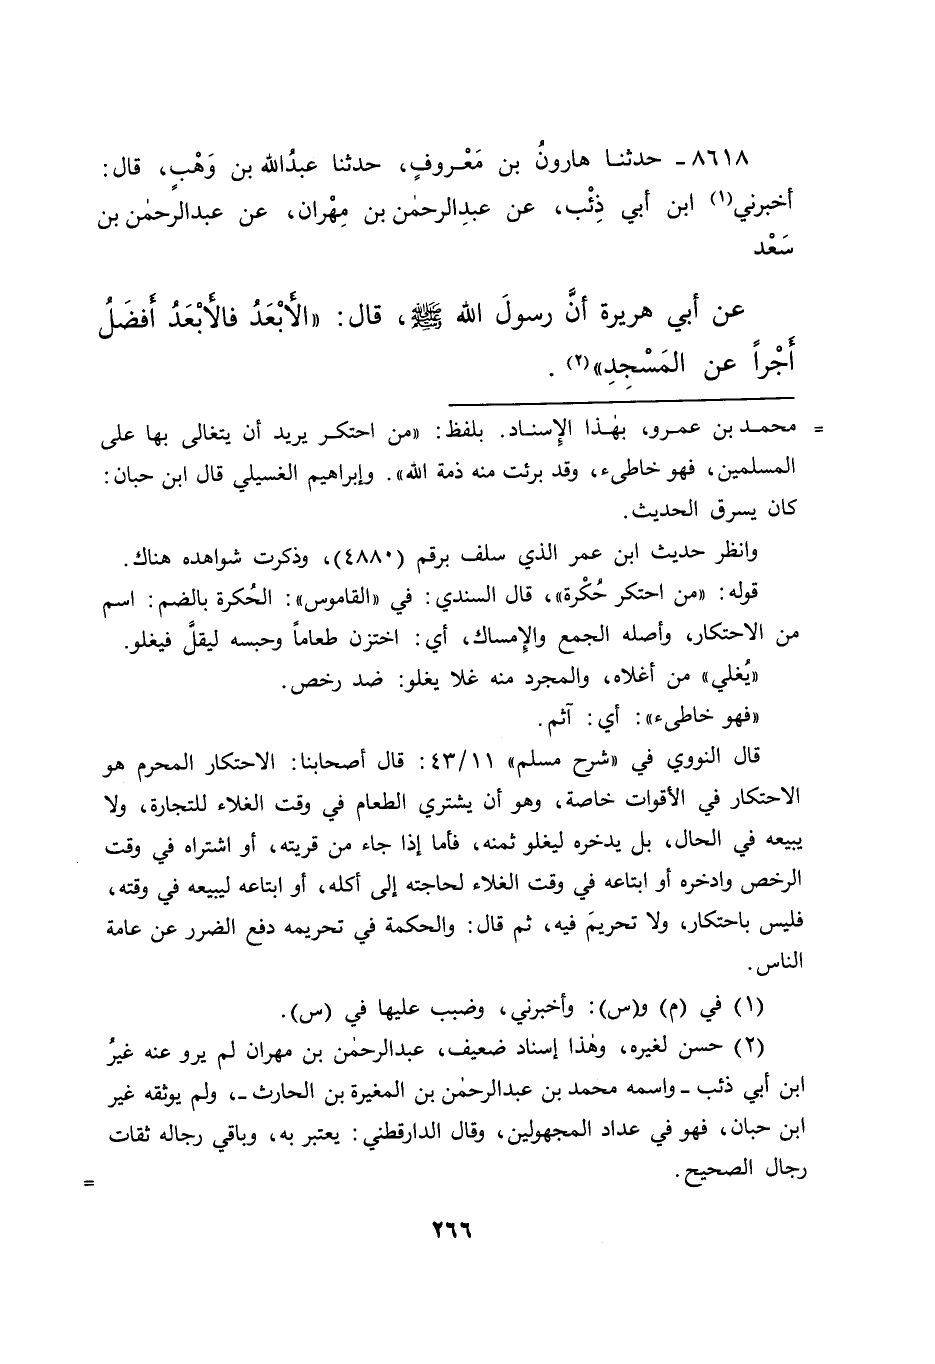 ٨٦١٨ـ حدثنا هارونُ بن مَعْروفٍ، حدثنا عبدُالله بن وَهْبٍ، قال:
أخبرني(١) ابن أبي ذِئْب، عن عبدِالرحمٰن بن مِهْران، عن عبدالرحمٰن بن
سَعْد
عن أبي هريرة أنَّ رسولَ الله ﷺ، قال: «الأَبْعَدُ فالأَبْعَدُ أَفضَلُ
أَجْراً عن المَسْجِدِ»(٢).
= محمد بن عمرو، بهٰذا الإسناد. بلفظ: «من احتكر يريد أن يتغالى بها على
المسلمين، فهو خاطىء، وقد برئت منه ذمة الله». وإبراهيم الغسيلي قال ابن حبان:
كان يسرق الحديث.
وانظر حديث ابن عمر الذي سلف برقم (٤٨٨٠)، وذكرت شواهده هناك.
قوله: «من احتكر حُكْرة»، قال السندي: في «القاموس»: الحُكرة بالضم: اسم
من الاحتكار، وأصله الجمع والإمساك، أي: اختزن طعاماً وحبسه ليقلَّ فيغلو.
«يُغلي» من أغلاه، والمجرد منه غلا يغلو: ضد رخص.
«فهو خاطىء»: أي: آثم.
قال النووي في «شرح مسلم» ٤٣/١١: قال أصحابنا: الاحتكار المحرم هو
الاحتكار في الأقوات خاصة، وهو أن يشتري الطعام في وقت الغلاء للتجارة، ولا
يبيعه في الحال، بل يدخره ليغلو ثمنه، فأما إذا جاء من قريته، أو اشتراه في وقت
الرخص وادخره أو ابتاعه في وقت الغلاء لحاجته إلى أكله، أو ابتاعه ليبيعه في وقته،
فليس باحتكار، ولا تحريمَ فيه، ثم قال: والحكمة في تحريمه دفع الضرر عن عامة
الناس.
(١) في (م) و(س): وأخبرني، وضبب عليها في (س).
(٢) حسن لغيره، وهٰذا إسناد ضعيف، عبدالرحمٰن بن مهران لم يرو عنه غيرُ
ابن أبي ذئب ـ واسمه محمد بن عبدالرحمٰن بن المغيرة بن الحارث ـ، ولم يوثقه غير
ابن حبان، فهو في عداد المجهولين، وقال الدارقطني: يعتبر به، وباقي رجاله ثقات
رجال الصحيح. =
٢٦٦